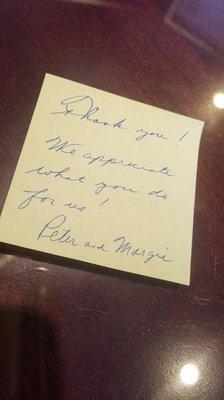 Thank you!
We appreciate
what you do
for us!
Peter and Margie